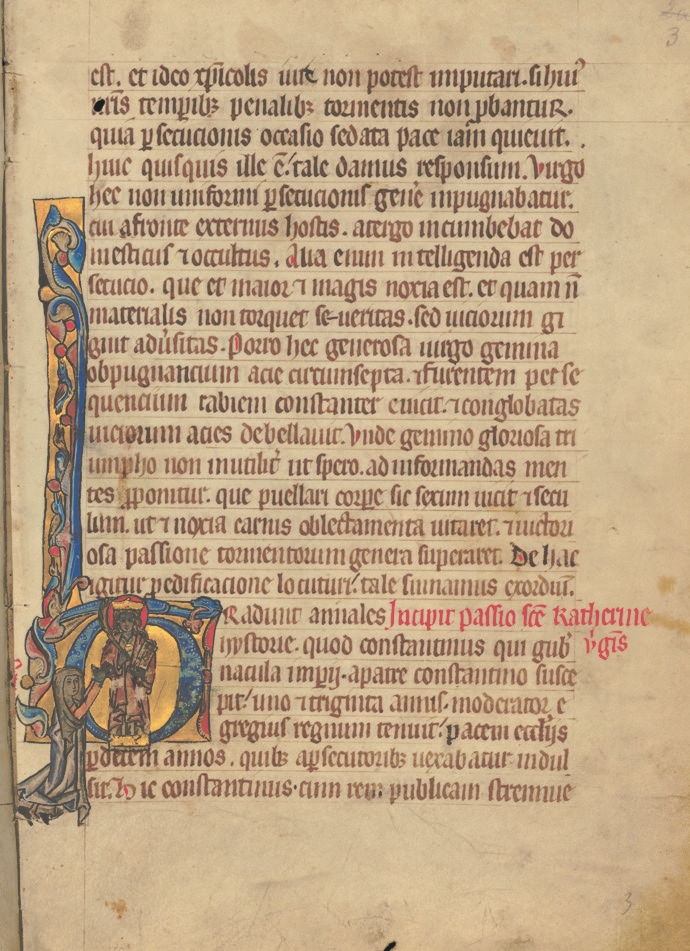 3
est. et ideo xp̄icolis uite non potest imputari. si hui᷒
nr̄is temp̄ib; penalib; tormentis non ꝓbantur.
quia ꝑsecucionis occasio sedata pace iam quieuit.
huic quisquis ille ē. tale damus responsum. Virgo
hec non uniformi ꝑsecucionis gen̄e inpugnabatur.
cui afronte externus hostis. atergo incumbebat do
mesticus ⁊ occultus. Alia enim intelligenda est per
secucio. que et maior ⁊ magis noxia est. et quam n̄
materialis non torquet seueritas. sed uiciorum gi
gnit adūsitas. Porro hec generosa uirgo gemina
obpugnancium acie circumsepta. ⁊ furentem perse
quencium rabiem constanter euicit. ⁊ conglobatas
uiciorum acies debellauit. Vnde gemino gloriosa tri
umpho non inutilit᷑ ut spero. ad informandas men
tes ꝓponitur. que puellari corꝑe sic sexum uicit ⁊ secu
lum. ut ⁊ noxia carnis oblectamenta uitaret. ⁊ uictori
osa passione tormentorum genera superaret. De hac
igitur ꝑ edificacione locuturi. tale sumamus exordiū.
Radunt annales Incipit passio sc̄e katherine
hystorie. quod constantinus qui gub᷑ v̄gīs
nacula imꝑij. apatre constantino susce
pit. uno ⁊ triginta annis. moderator e
gregius regnum tenuit. pacem eccl̄ijs
ꝑ decem annos. quib; aꝑsecutorib; uexabatur indul
sit. Hic constantinus. cum rem publicam strennue
3